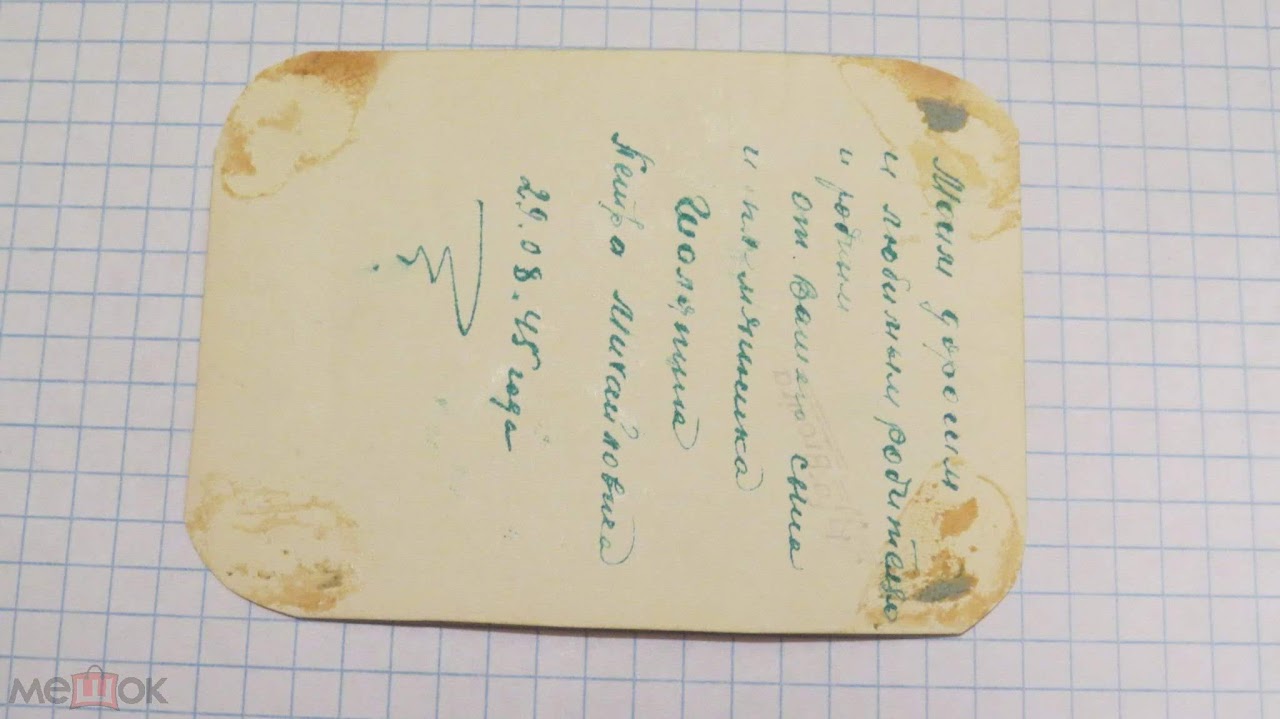 Моим дорогим
и любимым родителю
и родным
от Вашего сына
и племянника
Шаляпина
Петра Михайловича
29.08.45 года
мешок